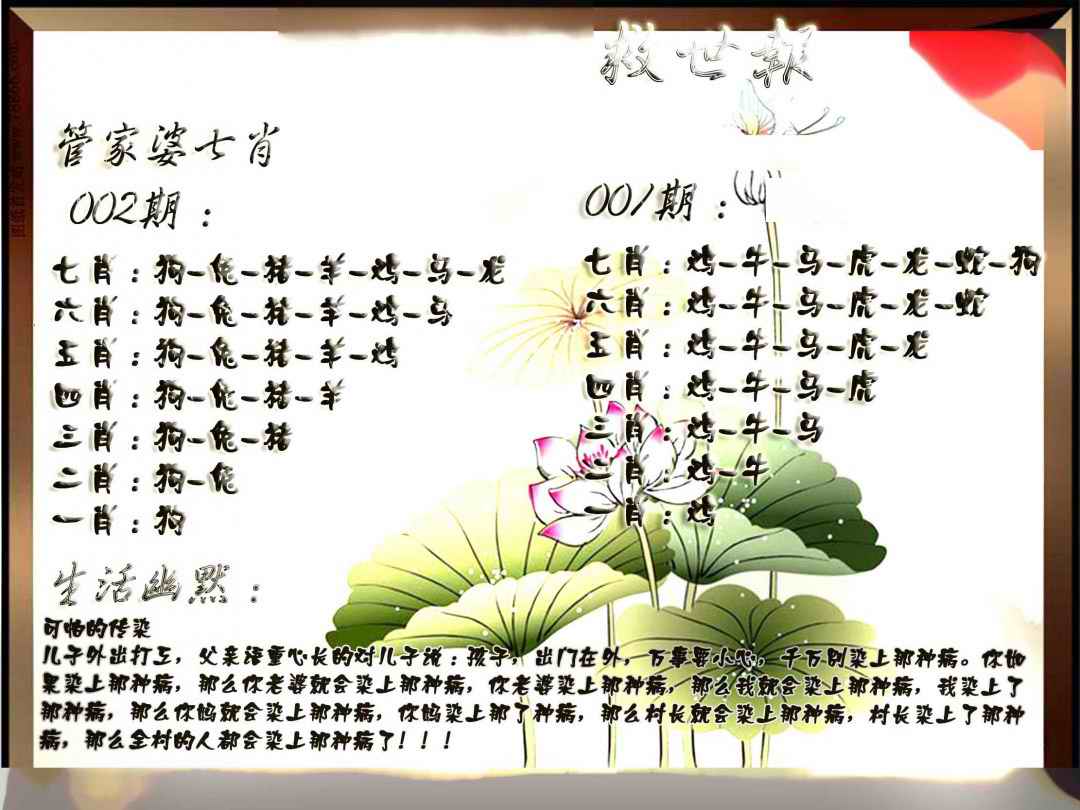 救世報
管家婆七肖
002期：
七肖：狗-兔-猪-羊-鸡-马-龙
六肖：狗-兔-猪-羊-鸡-马
五肖：狗-兔-猪-羊-鸡
四肖：狗-兔-猪-羊
三肖：狗-兔-猪
二肖：狗-兔
一肖：狗
001期：
七肖：鸡-牛-马-虎-龙-蛇-狗
六肖：鸡-牛-马-虎-龙-蛇
五肖：鸡-牛-马-虎-龙
四肖：鸡-牛-马-虎
三肖：鸡-牛-马
二肖：鸡-牛
一肖：鸡
生活幽默：
可怕的传染
儿子外出打工，父亲语重心长的对儿子说：孩子，出门在外，万事要小心，千万别染上那种病。你如
果染上那种病，那么你老婆就会染上那种病，你老婆染上那种病，那么我就会染上那种病，我染上了
那种病，那么你妈就会染上那种病，你妈染上那了种病，那么村长就会染上那种病，村长染上了那种
病，那么全村的人都会染上那种病了！！！